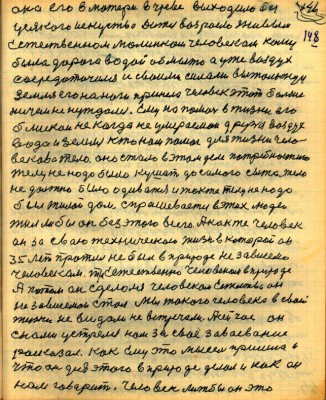 она его в матери в чреве выходило без
всякого искусства Дети возрасло живым
Естественном маленким человеком кому
была дорога водой обмыто а уже воздух
сосредоточился и своими силами вытолкнул
Земля его на ноги приняла человек этот больше
ничем не нуждался. Ему по помощ в жизни его
близкии не когда не умираемаи друзья воздух
вода и земля кто нам помог для жизни чело-
века его тело, оно стало в этом деле потребностию
телу не надо было кушат до самого сыта тело
не должно было одеватся и тоже телу не надо
был жилой дом. спрашевается в тех людеи
жил либы он без этого всего. А как те человек
он за сваю техническою жизнь в которой он
35 лет прожил не был в природе не зависемо
человекам. Естественно человеком в природе
А потом он сделался человеком
не зависемом стал Мы такого человека в своей
жизни не видали не встречали. А сичас он
с нами устрелся нам за своё завоевание
рассказал. Как ему это мысел пришла в
что он для этого в природе делал и как он
нам говорит. Человек жилбы он это
148